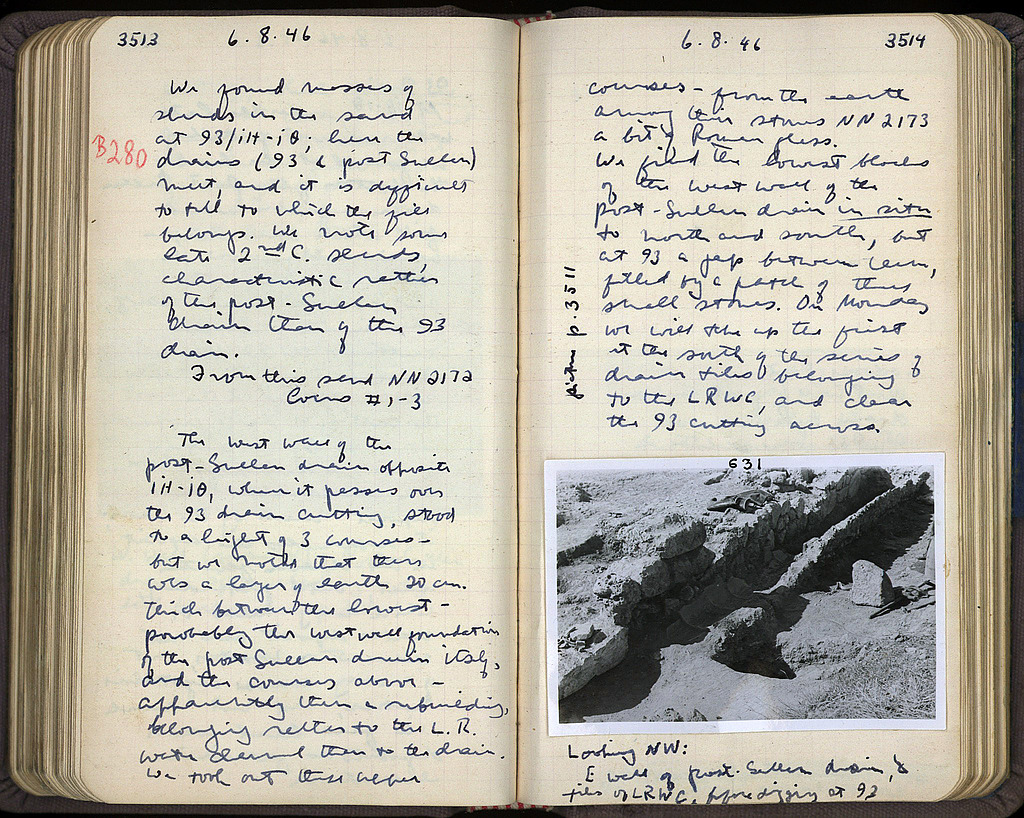 3513
6.8.46
We found masses of
sherds in the sand
at 93/ιΗ-ιΘ; here the
B280
drains (93 & post Sullan)
meet, and it is difficult
to tell to which the fill
belongs. We note some
late 2nd C. sherds,
characteristic rather
of the post-Sullan
drain than of the 93
drain.
From this sand NN 2172
Coins #1-3
The west wall of the
post-Sullan drain opposite
ιΗ-ιΘ, where it passes over
the 93 drain cutting, stood
to a height of 3 courses -
but we noted that there
was a layer of earth 20 cm.
thick between the lowest -
probably the west wall foundation
of the post Sullan drain itself,
and the courses above -
apparently then a rebuilding,
belonging rather to the L.R.
water channel than to the drain.
We took out these upper
6.8.46
3514
courses - from the earth
among their stones NN 2173
a bit of Roman glass.
We find the lowest blocks
of the west wall of the
post-Sullan drain in situ
to north and south, but
at 93 a gap between them,
filled by a patch of
small stones. On Monday
we will take up the first
at the south of the series of
drain tiles belonging
to the LRWC, and clear
the 93 cutting across.
picture p. 3511
631
Looking NW:
E wall of post-Sullan drain, &
tiles of LRWC, before digging at 93